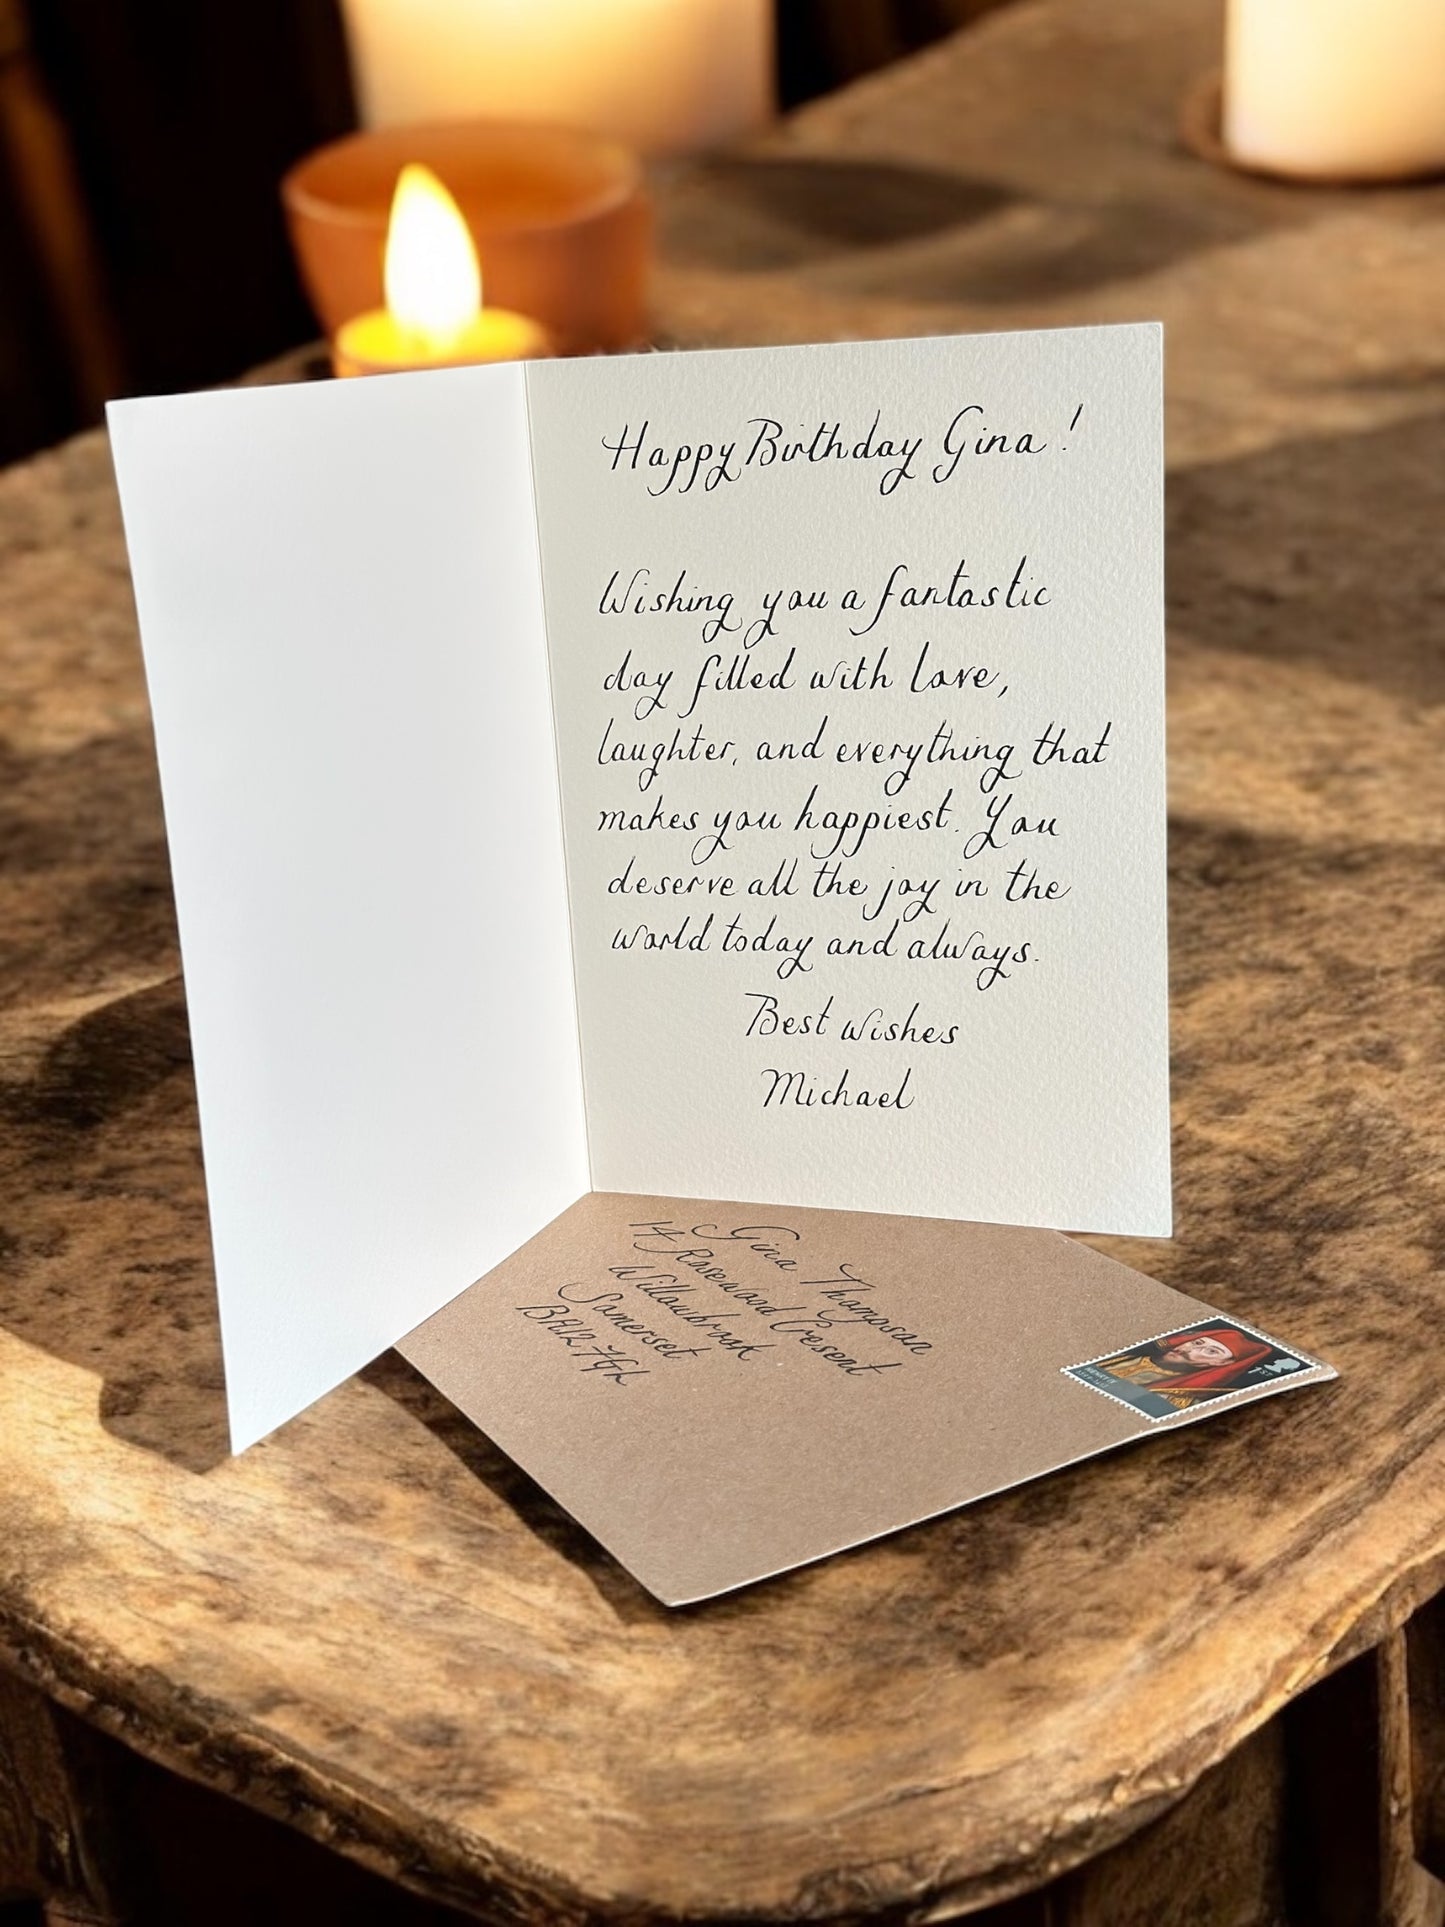 Happy Birthday Gina!
Wishing you a fantastic
day filled with love,
laughter, and everything that
makes you happiest. You
deserve all the joy in the
world today and always.
Best wishes
Michael
Gina Thompson
14 Rosewood Cresent
Willowbrook
Somerset
BA12 7GH
1ST